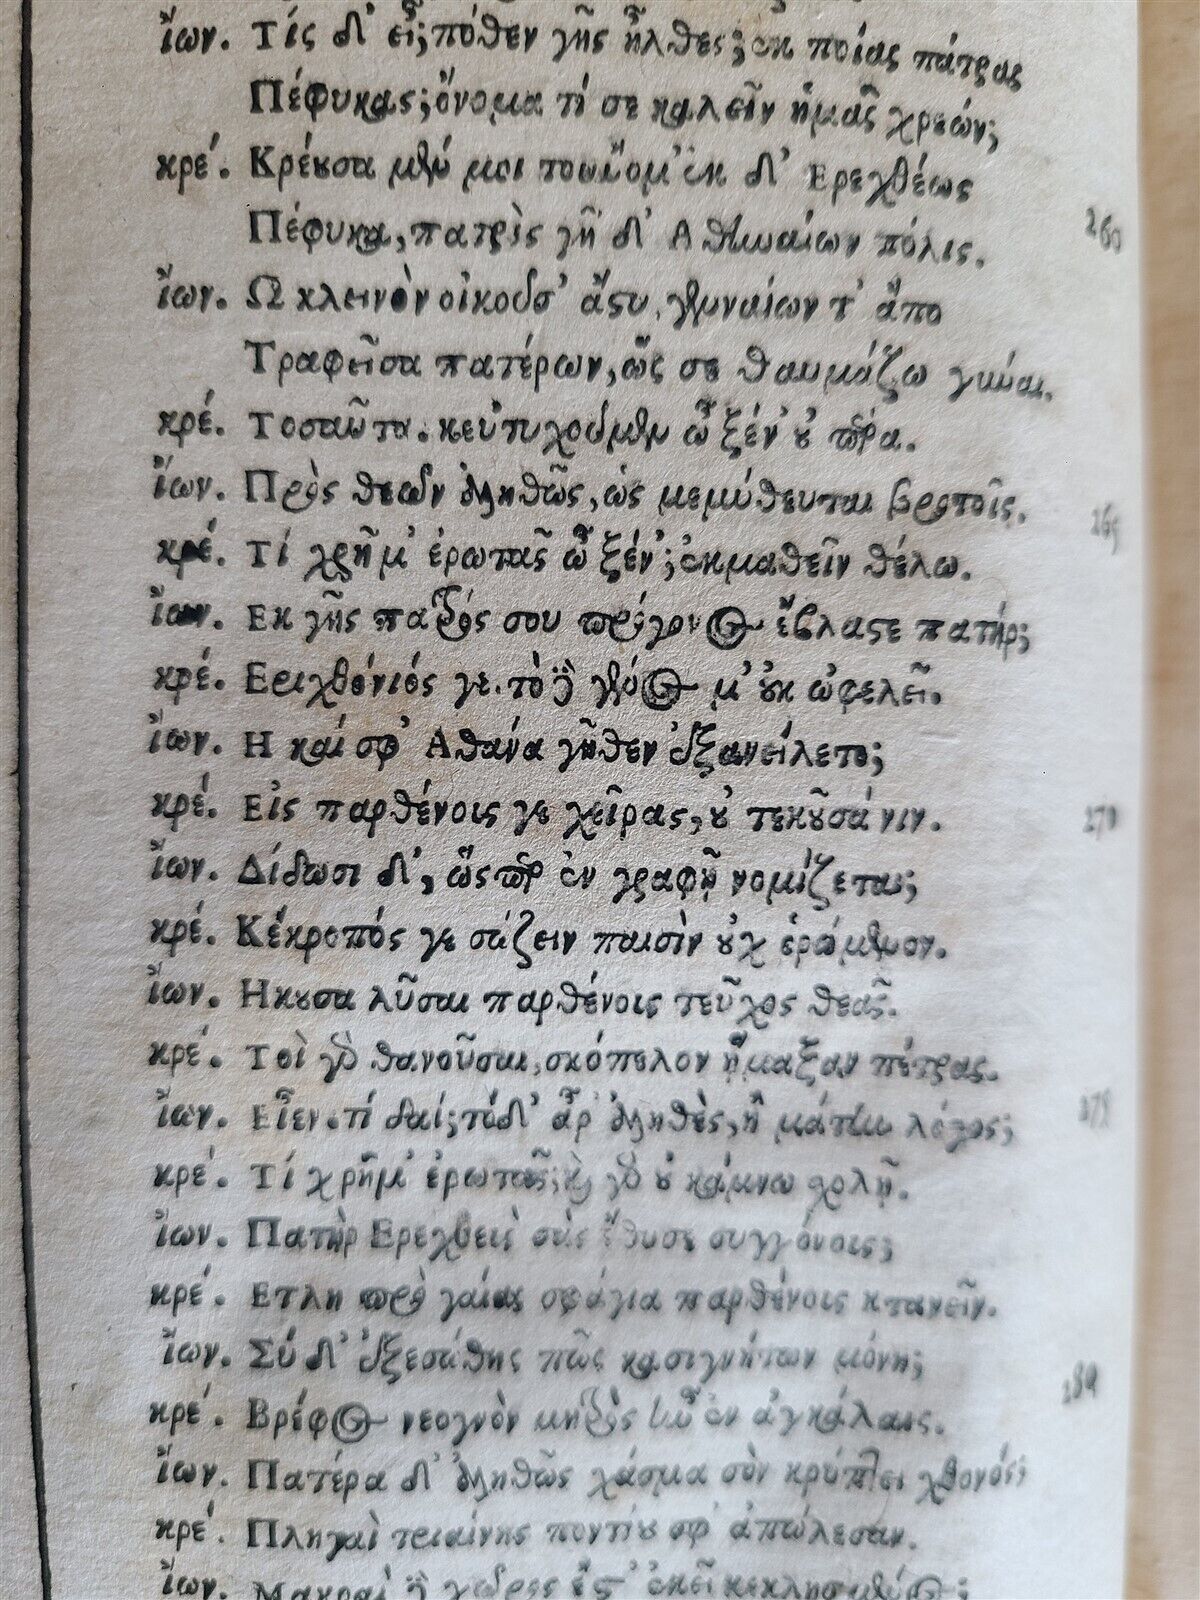 ἴων. Τίς δ' εἶ; πόθεν γῆς ἦλθες; ἐκ ποίας πάτρας
Πέφυκας; ὄνομα τί σε καλεῖν ἡμᾶς χρεών;
κρέ. Κρέουσα μέν μοι τοὔνομ' ἐκ δ' Ερεχθέως
Πέφυκα, πατρὶς γῆ δ' Αθηναίων πόλις.
260
ἴων. Ω κλεινὸν οἰκοῦσ' ἄστυ, γενναίων τ' ἄπο
Τραφεῖσα πατέρων, ὥς σε θαυμάζω γύναι.
κρέ. Τοσαῦτα κεὐτυχοῦμεν ὦ ξέν' οὐ πέρα.
ἴων. Πρὸς θεῶν ἀληθῶς, ὡς μεμύθευται βροτοῖς.
265
κρέ. Τί χρῆμ' ἐρωτᾷς ὦ ξέν'; ἐκμαθεῖν θέλω.
ἴων. Εκ γῆς πατρός σου πρόγονος ἔβλαστε πατήρ;
κρέ. Εριχθόνιός γε. τὸ δὲ γένος μ' οὐκ ὠφελεῖ.
ἴων. Η καί σφ' Αθάνα γῆθεν ἐξανείλετο;
κρέ. Εἰς παρθένοις γε χεῖρας, οὐ τεκοῦσά νιν.
270
ἴων. Δίδωσι δ', ὥσπερ ἐν γραφῇ νομίζεται;
κρέ. Κέκροπός γε σώζειν παισὶν οὐχ ὁρώμενον.
ἴων. Ηκουσα λῦσαι παρθένοις τεῦχος θεᾶς.
κρέ. Τοὶ γὰρ θανοῦσαι, σκόπελον ᾕμαξαν πέτρας.
ἴων. Εἶεν. τί δαί; τόδ' ἆρ' ἀληθὲς, ἢ μάτην λόγος;
275
κρέ. Τί χρῆμ' ἐρωτᾷς; καὶ γὰρ οὐ κάμνω σχολῇ.
ἴων. Πατὴρ Ερεχθεὺς σὰς ἔθυσε συγγόνους;
κρέ. Ετλη πρὸ γαίας σφάγια παρθένοις κτανεῖν.
ἴων. Σύ δ' ἐξεσώθης πῶς κασιγνήτων μόνη;
κρέ. Βρέφος νεογνὸν μητρὸς ἦν ἐν ἀγκάλαις.
280
ἴων. Πατέρα δ' ἀληθῶς χάσμα σὸν κρύπτει χθονός;
κρέ. Πληγαὶ τριαίνης ποντίου σφ' ἀπώλεσαν.
ἴων. Μακραὶ δὲ χῶρος ἔστ' ἐκεῖ κεκλημένος;